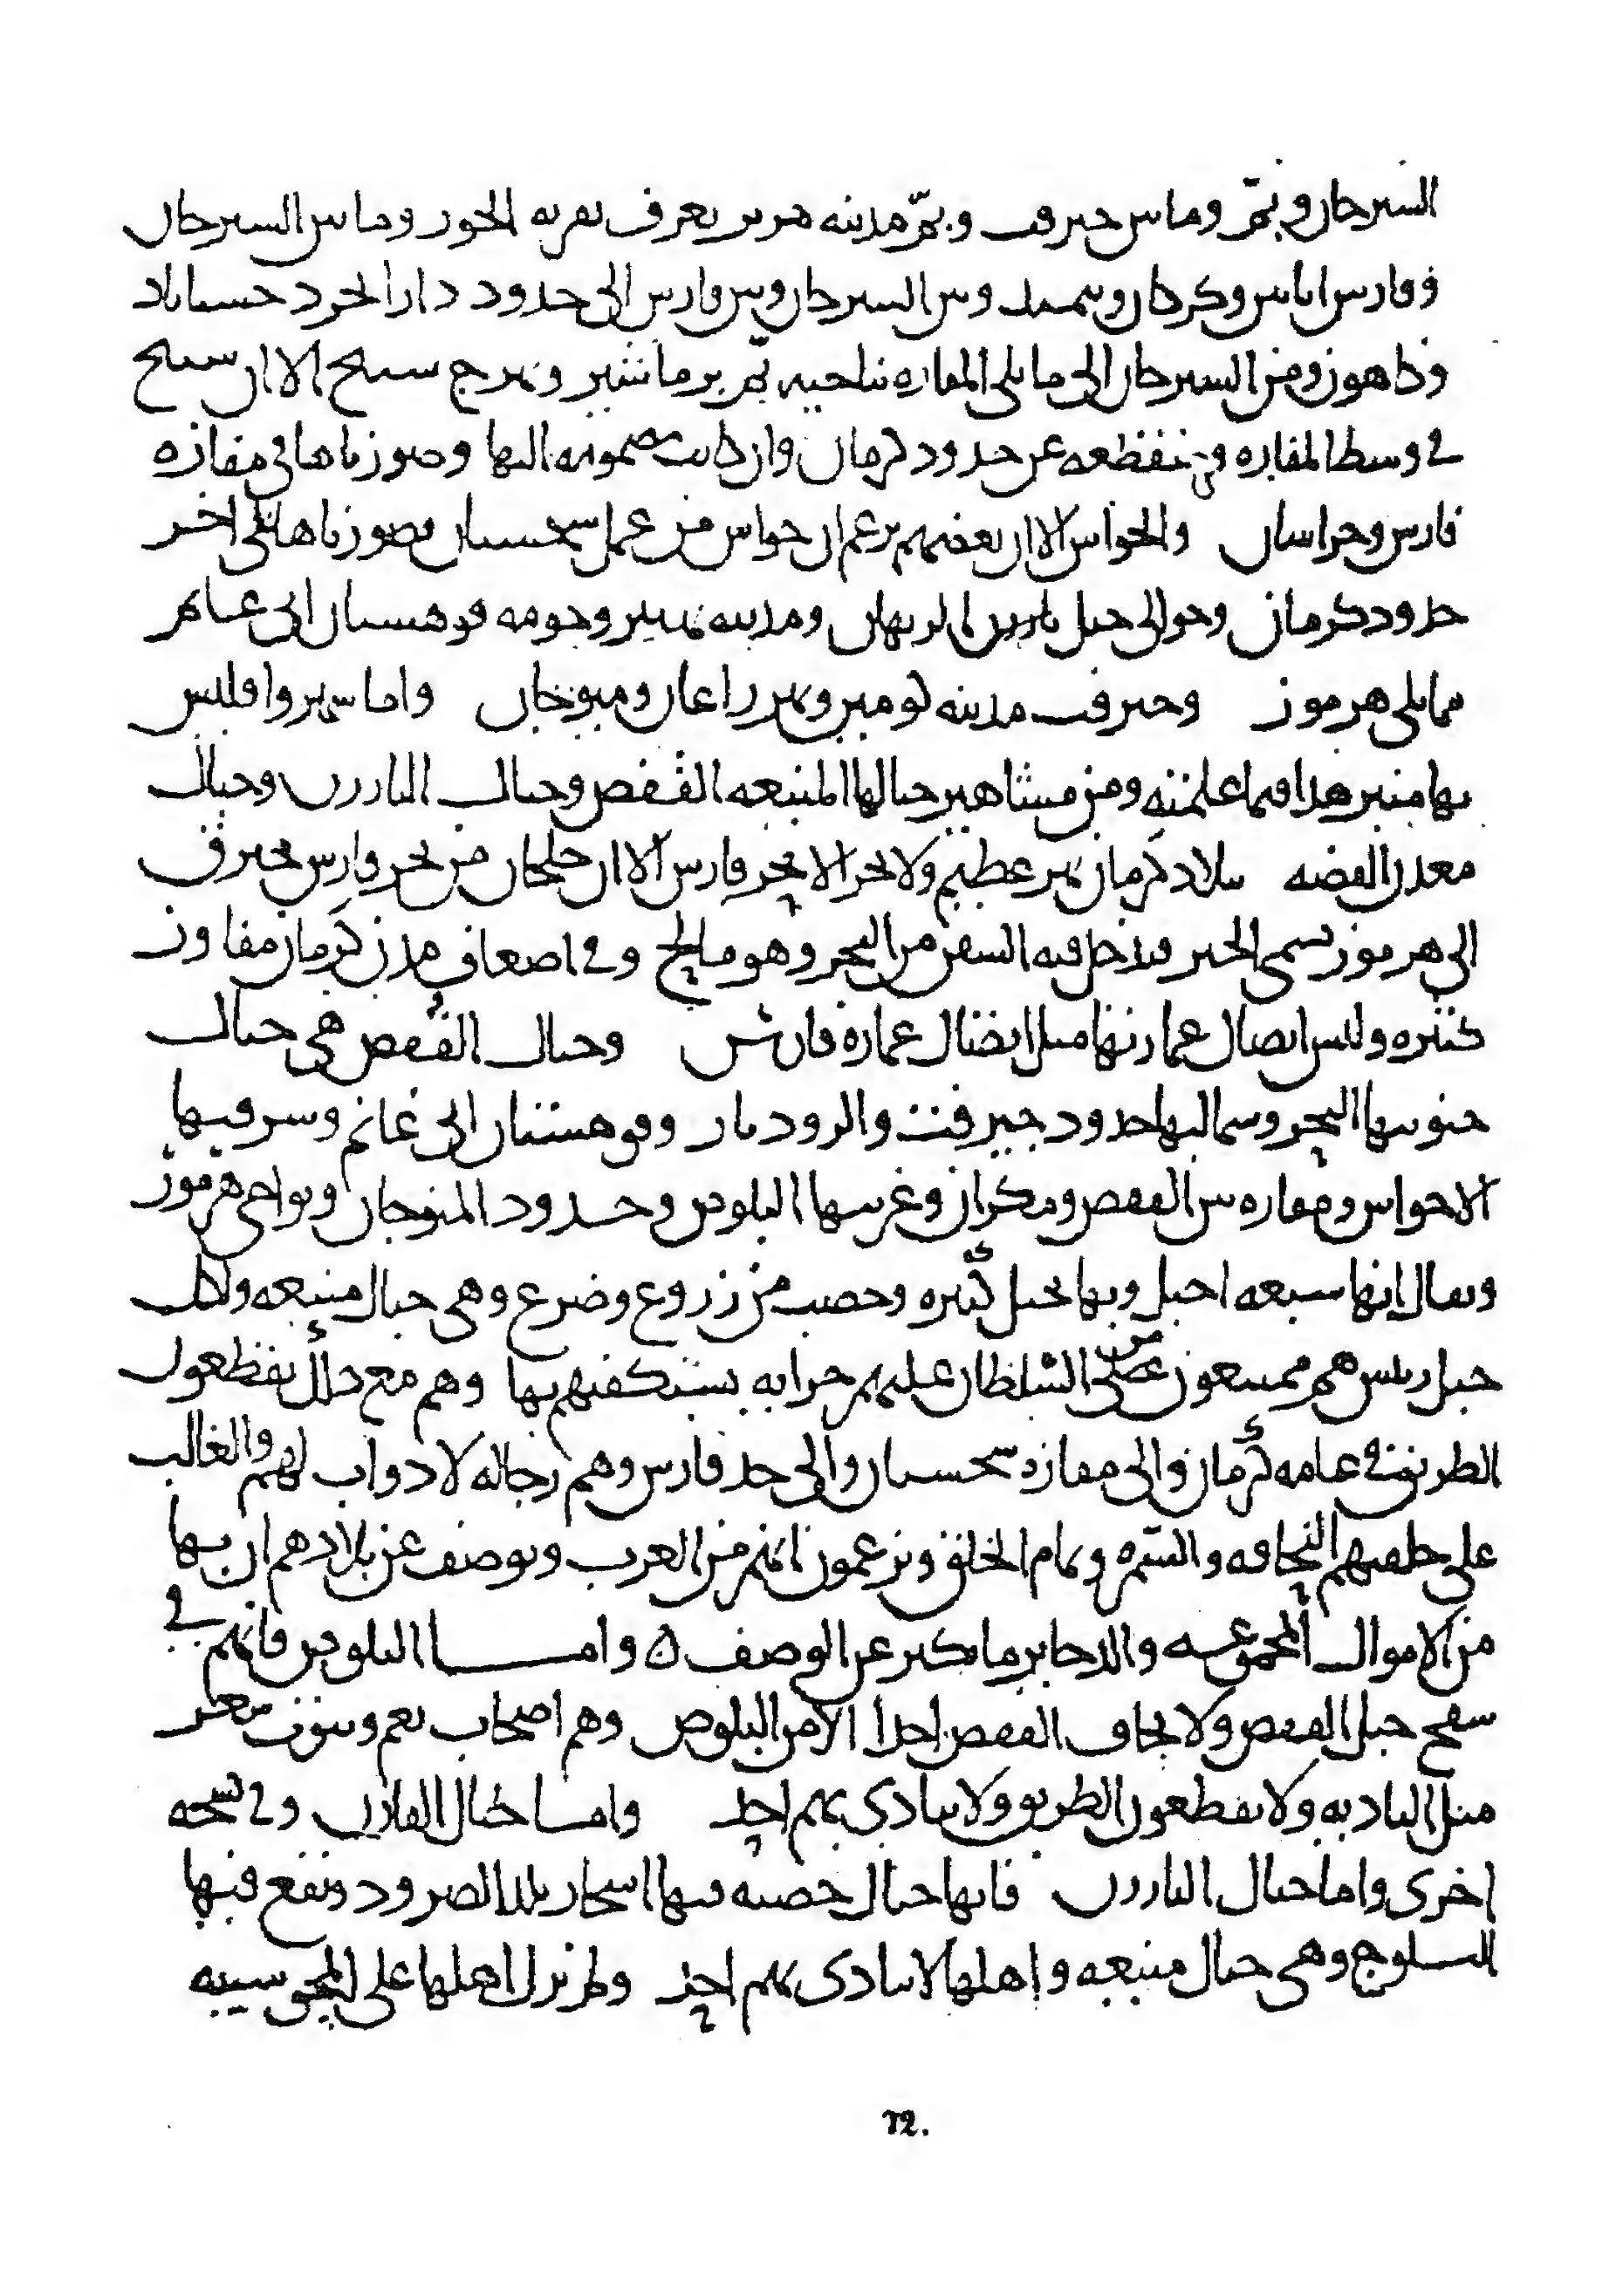 السيرجان وبمّ وما بين جيرفت وبمّ مدينه هرمز يعرف بقريه الجوز وما بين السيرجان
وفارس اناس وكردكان وبيمند وبين السيرجان وبين فارس الى حدود دارابجرد حسناباد
وكاهون ومن السيرجان الى ما يلي المفازه بناحيه بمّ برماشير ونهرج سنيج الا ان سنيج
في وسط المفازه وهي منقطعه عن حدود كرمان وان كانت مضمومه اليها وصورناها في مفازه
فارس وخراسان والخواش الا ان بعضهم يزعم ان خواش من عمل سجستان فصورناها في اخر
حدود كرمان وحوالي جبل بارز الريقان ومدينه وحومه قوهستان ابي غانم
مما يلي هرموز وجيرفت مدينه كومين ونهر زاغان ومنوجان واما سهر وا فليس
بها منبر هذا فيما علمته ومن مشاهير جبالها المنيعه القفص وجبال البارز وجبال
معدن الفضه ببلاد كرمان نهر عظيم ولا بحر الا بحر فارس الا ان خليجان من بحر فارس يخرق
الى هرموز يسمى الجير فيدخل فيه السفن من البحر وهو مالح وفي اضعاف مدن كرمان مفاوز
كثيره وليس اتصال عمارتها مثل اتصال عماره فارس وجبال القفص هي جبال
جنوبيها البحر وشماليها حدود جيرفت والروذبار وقوهستان ابي غانم وشرقيها
الاخواش ومفازه بين القفص ومكران وغربيها البلوص وحدود المنوجان ونواحي هرموز
ويقال انها سبعه اجبل وبها نخيل كثيره وخصب من زروع وضرع وهي جبال منيعه ولكل
جبل رئيس هم ممتنعون من على السلطان عليهم جرايه يستكفهم بها وهم مع ذلك يقطعون
الطريق في عامه كرمان والى مفازه سجستان والى حد فارس وهم رجاله لا دواب لهم والغالب
على خلقهم النحافه والسمره وتمام الخلق ويزعمون انهم من العرب ويوصف عن بلادهم ان بها
من الاموال المجموعه والذخاير ما يكبر عن الوصف ٥ وامـــا البلوص فانهم في
سفح جبل القفص ولا يخاف القفص احدا الا من البلوص وهم اصحاب نعم وبيوت شعر
مثل الباديه ولا يقطعون الطريق ولا يتاذى بهم احد وامـا جبال القارن وفي نسخه
اخرى واما جبال البارز فانها جبال خصبه فيها اشجار بلد الصرود وتقع فيها
الثلوج وهي جبال منيعه واهلها لا يتاذى بهم احد ولم يزل اهلها على المجوسيه
72.